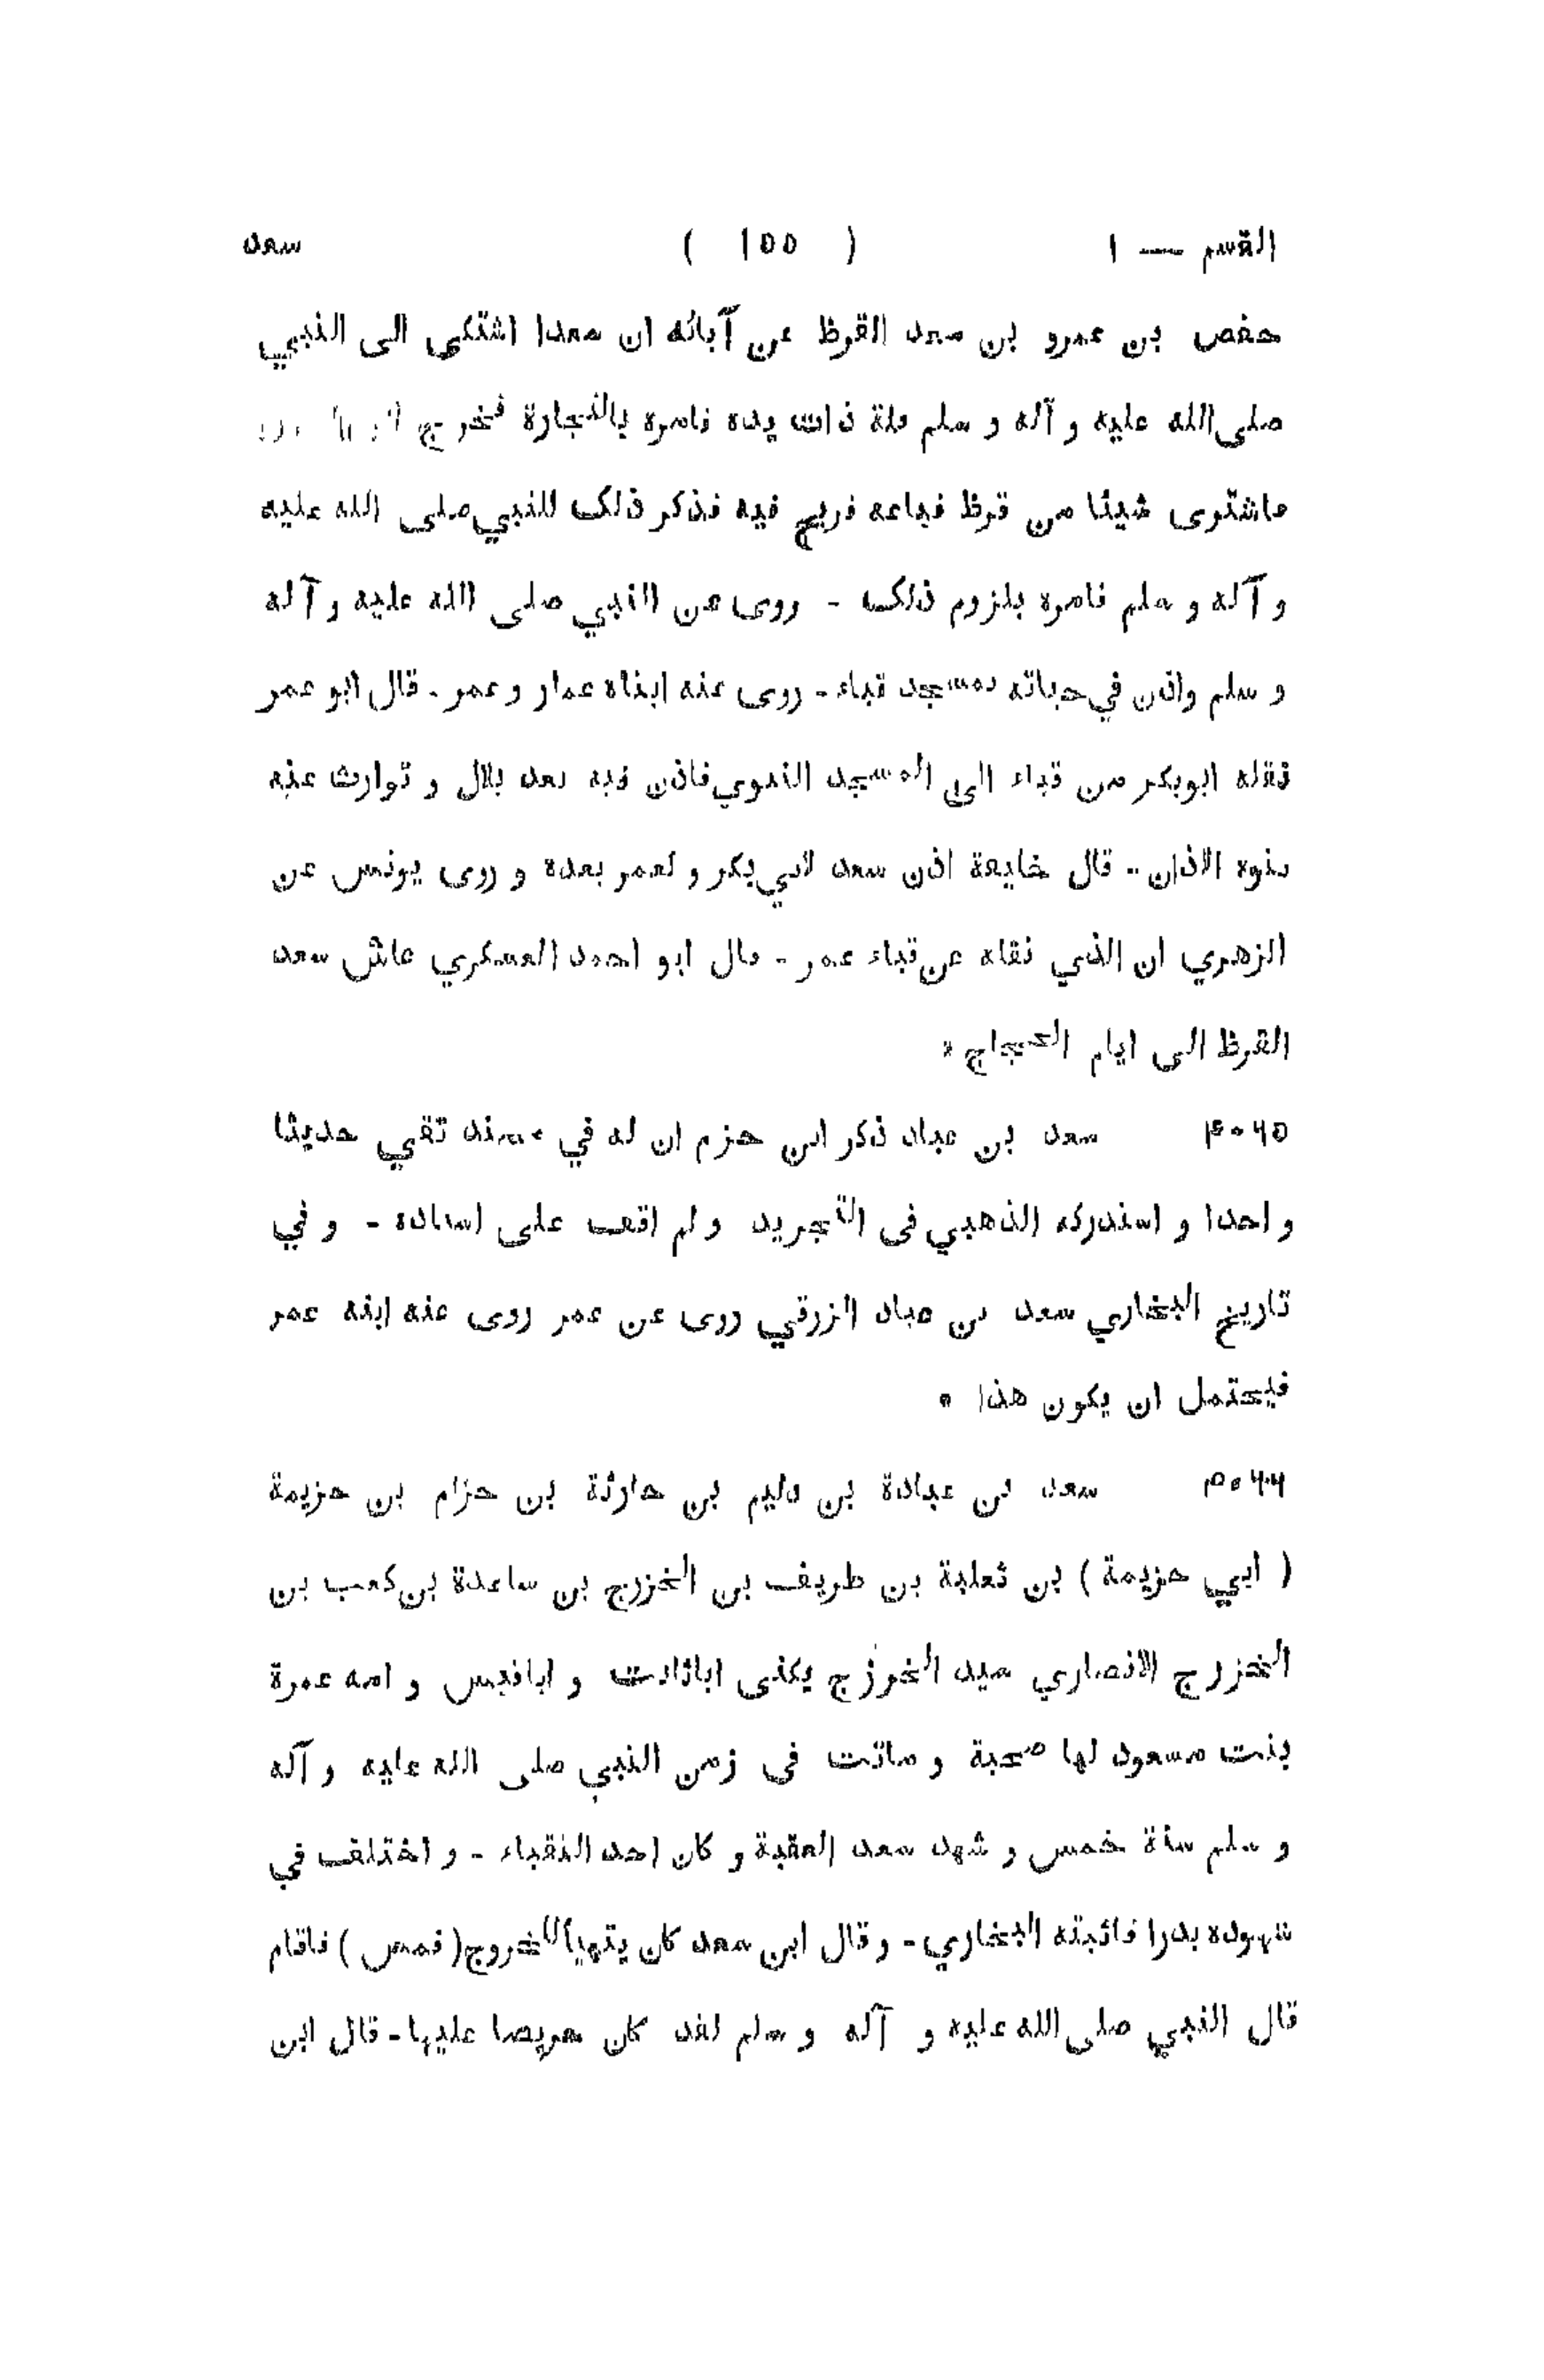 القسم — ١ ( ١٥٥ ) سعد
حفص بن عمرو بن سعد القرظ عن آبائه ان سعدا اشتكى الى النبي
صلى الله عليه و آله و سلم قلة ذات يده فامره بالتجارة فخرج
فاشترى شيئا من قرظ فباعه فربح فيه فذكر ذلك للنبي صلى الله عليه
و آله و سلم فامره بلزوم ذلك - روى عن النبي صلى الله عليه و آله
و سلم واذن في حياته بمسجد قباء - روى عنه ابناه عمار و عمر - قال ابو عمر
نقله ابوبكر من قباء الى المسجد النبوي فاذن فيه بعد بلال و توارث عنه
بنوه الاذان - قال خليفة اذن سعد لابي بكر و لعمر بعده و روى يونس عن
الزهري ان الذي نقله عن قباء عمر - قال ابو احمد العسكري عاش سعد
القرظ الى ايام الحجاج *
۴۰۶۵ سعد بن عباد ذكر ابن حزم ان له في مسند تقي حديثا
واحدا و استدركه الذهبي فى التجريد و لم اقف على اسناده - و في
تاريخ البخاري سعد بن عباد الزرقي روى عن عمر روى عنه ابنه عمر
فيحتمل ان يكون هذا *
۴۰۶۶ سعد بن عبادة بن دليم بن حارثة بن حزام بن حزيمة
( ابي حزيمة ) بن ثعلبة بن طريف بن الخزرج بن ساعدة بن كعب بن
الخزرج الانصاري سيد الخزرج يكنى اباثابت و اباقيس و امه عمرة
بنت مسعود لها صحبة و ماتت فى زمن النبي صلى الله عليه و آله
و سلم سنة خمس و شهد سعد العقبة و كان احد النقباء - و اختلف في
شهوده بدرا فاثبته البخاري - و قال ابن سعد كان يتهيأ للخروج ( فنهس ) فاقام
قال النبي صلى الله عليه و آله و سلم لقد كان حريصا عليها - قال ابن